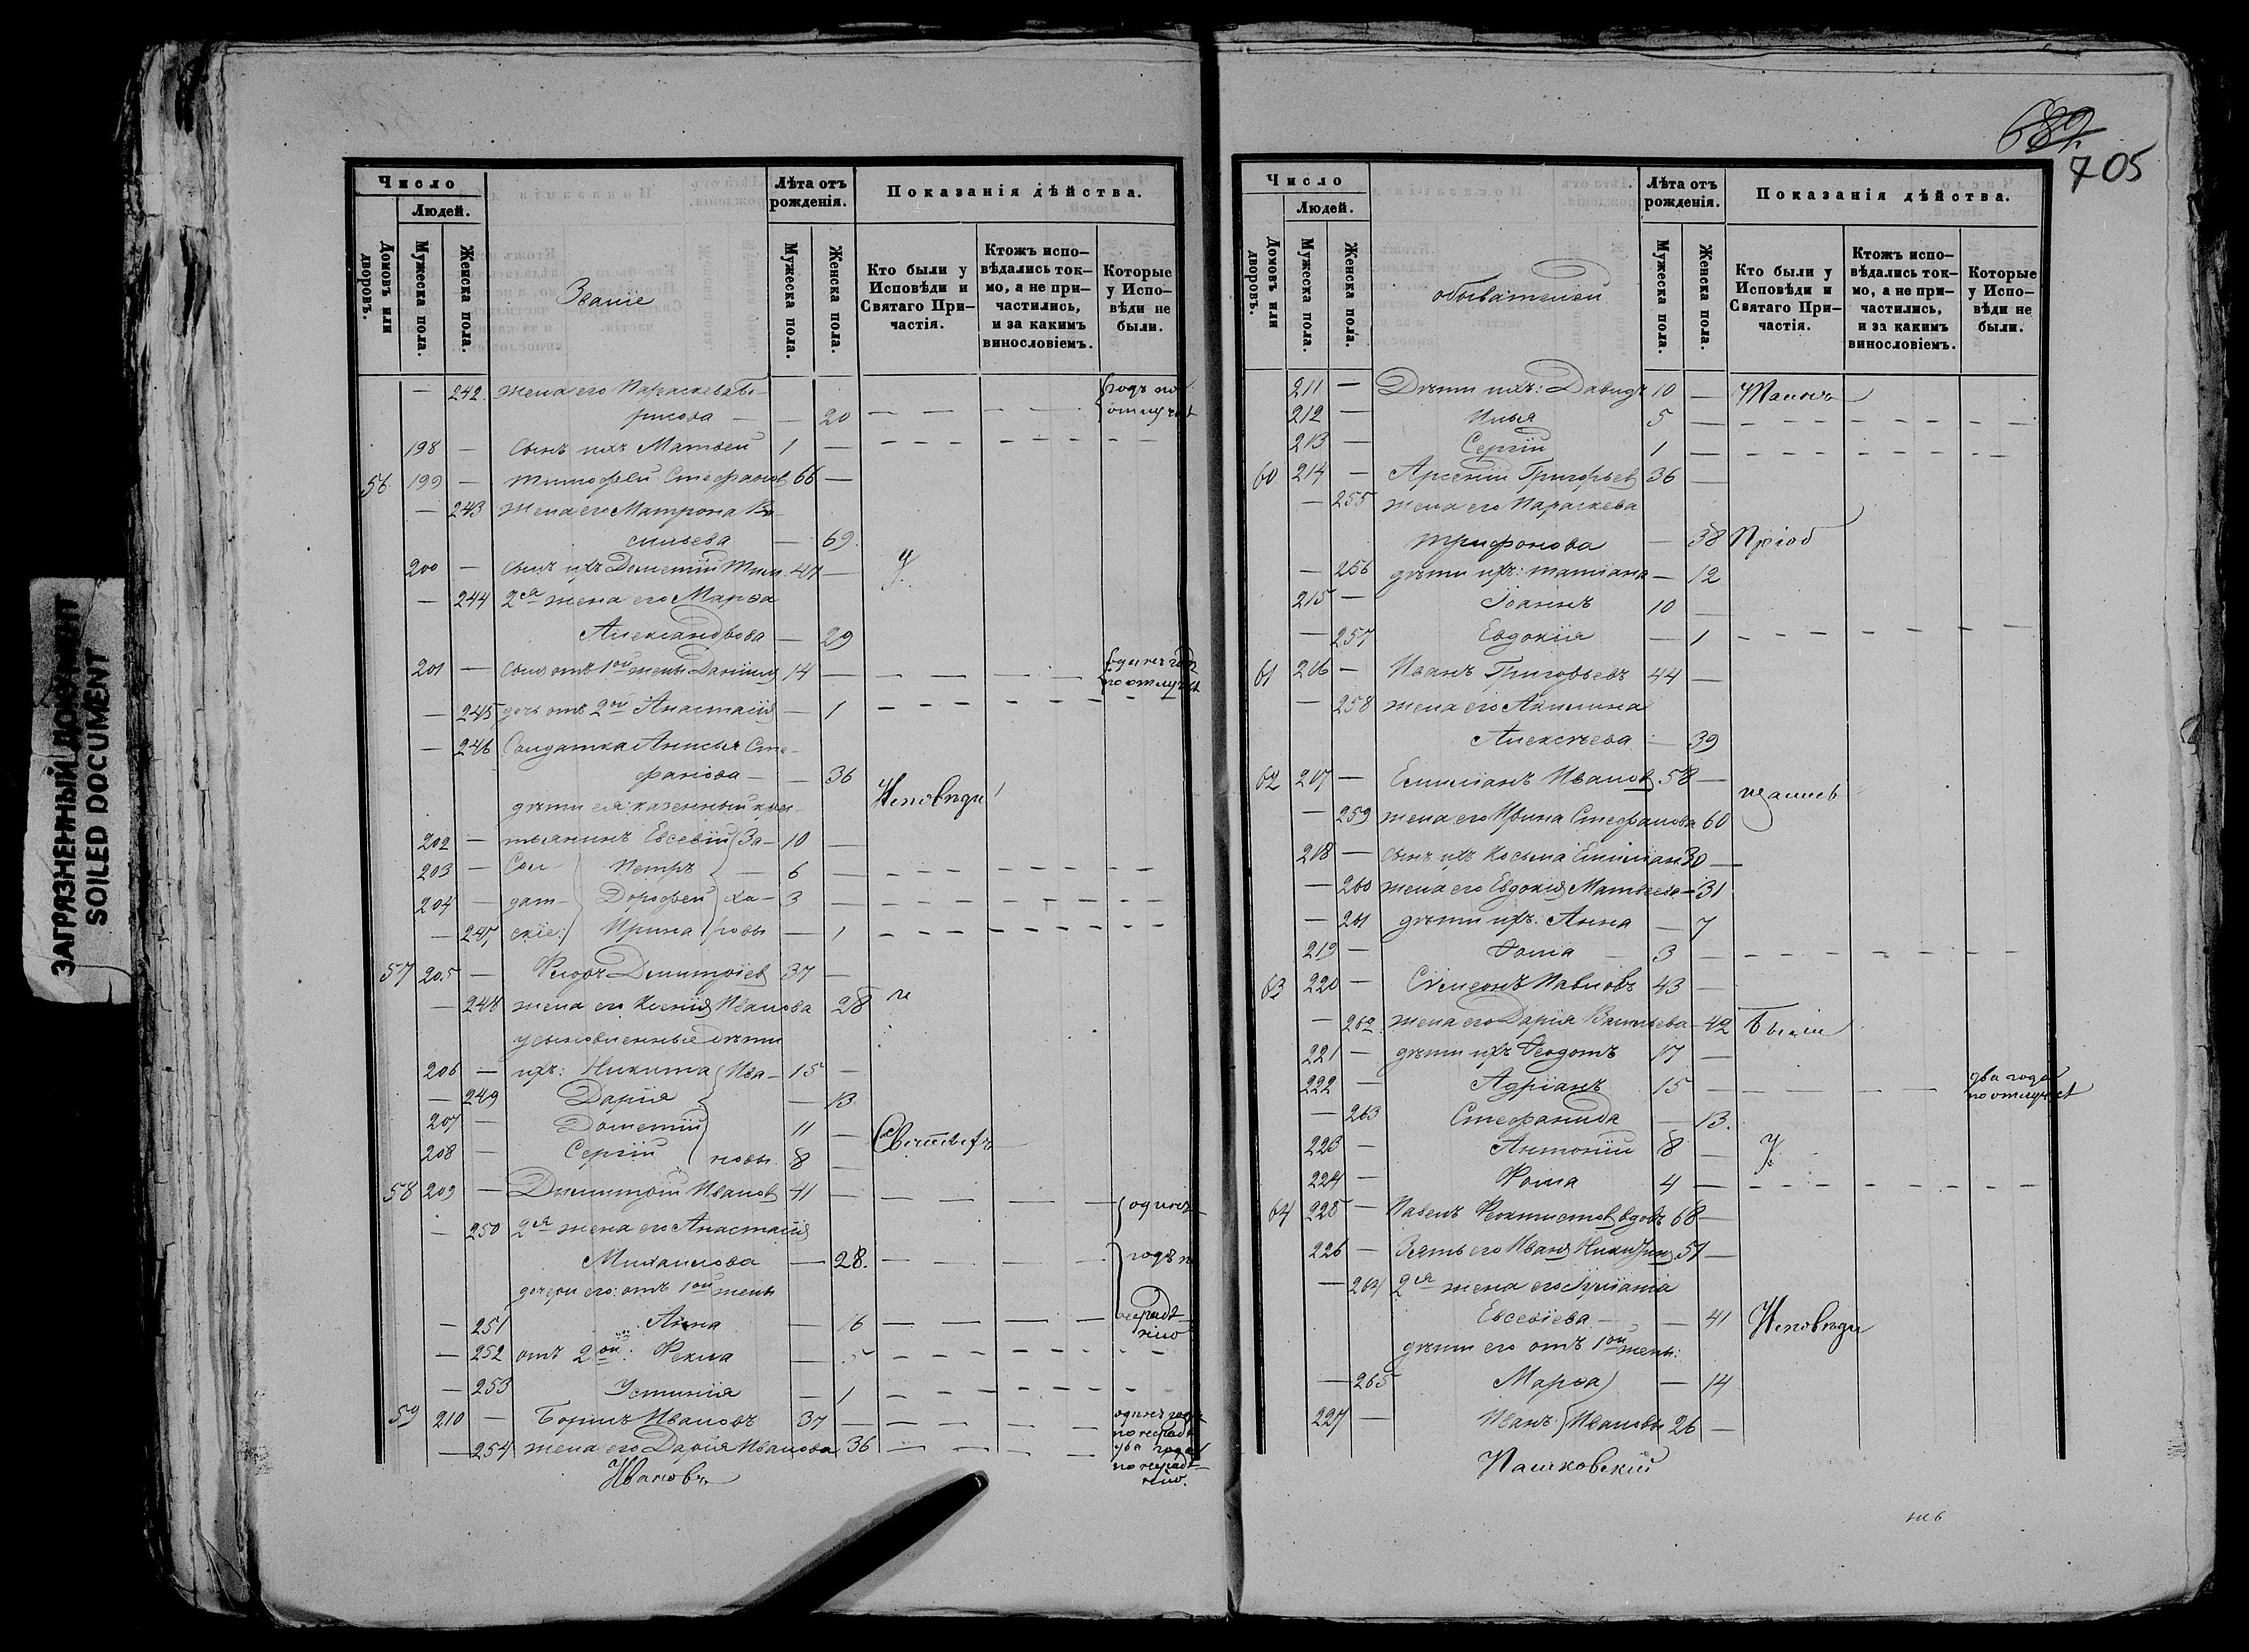 682
705
ЗАГРЯЗНЕННЫЙ ДОКУМЕНТ
SOILED DOCUMENT
Число
Людей.
Домовъ или дворовъ.
Мужеска пола.
Женска пола.
Званіе
Лѣта отъ рожденія.
Мужеска пола.
Женска пола.
Показанія дѣйства.
Кто были у Исповѣди и Святаго Причастія.
Ктожъ исповѣдались токмо, а не причастились, и за какимъ винословіемъ.
Которые у Исповѣди не были.
— 242. жена его Параскева Бо-
рисова — — 20 — — — — годъ по отлучкѣ
198 — сынъ ихъ Матвей 1 — — — — — — — —
56 199 — Тимофей Стефановъ 66 —
— 243 жена его Матрона Ва-
сильева — 69.
200 — сынъ ихъ Дометій Тим. 47 — У
— 244 2ая жена его Марѳа
Александрова — 29
201 — сынъ отъ 1ой жены Даніилъ 14 — — — — — одинъ годъ по отлучкѣ
— 245 дочь отъ 2ой Анастасія — 1 — — — — — — —
— 246 Солдатка Анисья Сте-
фанова — — 36
Исповѣди
дѣти ея: казенный кре-
202 — стьянинъ Евсевій За- 10 —
203 — Сол- Петръ — 6 — — — — — — — —
204 — дат- Дорофей ха- 3 — — — — — — — —
— 247 скіе: Ирина ровы — 1 — — — — — — — —
57 205 — Ѳеодоръ Димитріев 37 —
— 248 жена его Ксенія Иванова 28 и
усыновленные дѣти
206 — ихъ: Никита Ива- 15 —
— 249 Дарія — 13
207 — Дометій 11 —
Святыхъ
208 — Сергій новы. 8 —
58 209 — Димитрій Иванов 41 — — — — — одинъ
— 250 2ая жена его Анастасія
Михаилова — 28. — — — — годъ п
дочери его: отъ 1ой жены
— 251 Анна — 16 — — — — нерадѣнію
— 252 отъ 2ой: Ѳекла — 5 — — — — — — —
— 253 Устинія — 1 — — — — — — —
59 210 — Борисъ Ивановъ 37 — — — — — одинъ годъ по нерадѣ
— 254 жена его Дарія Иванова 36 — — — — два года по нерадѣнію.
Ивановъ
Число
Людей.
Домовъ или дворовъ.
Мужеска пола.
Женска пола.
обывателей
Лѣта отъ рожденія.
Мужеска пола.
Женска пола.
Показанія дѣйства.
Кто были у Исповѣди и Святаго Причастія.
Ктожъ исповѣдались токмо, а не причастились, и за какимъ винословіемъ.
Которые у Исповѣди не были.
211 — Дѣти ихъ: Давидъ 10 — Таинъ
212 — Илья 5 — — — — — — — —
213 — Сергій 1 — — — — — — — —
60 214 — Арсеній Григорьев 36 —
— 255 жена его Параскева
Трифонова — 38 Пріоб
— 256 дѣти ихъ: Татіана — 12
215 — Іоаннъ 10 —
— 257 Евдокія — 1 — — — — — — —
61 216 — Иванъ Григорьевъ 44 —
— 258 жена его Акилина
Алексѣева — 39
62 217 — Емиліанъ Иванов 58 —
щались
— 259 жена его Ирина Стефанова 60
218 — сынъ ихъ Косьма Емиліан 30 —
— 260 жена его Евдокія Матвеева — 31
— 261 дѣти ихъ: Анна — 7
219 — Ѳома — 3 — — — — — — — —
63 220 — Сѵмеонъ Павловъ 43 —
— 262. жена его Дарія Васильева — 42 Были
221 — дѣти ихъ Ѳеодотъ 17 —
222 — Адріанъ 15 — — — — два года по отлучкѣ
— 263 Стефанида — 13.
223 — Антоній 8 — У
224 — Ѳома 4 — — — — — — — —
64 225 — Павелъ Ѳеоктистов вдовъ 68 —
226 — Зять его Иванъ Никитин 51 —
— 264 2ая жена его Іуліанія
Евсевіева — — 41 Исповѣди
дѣти его отъ 1ой жены:
— 265 Марѳа — 14
227 — Иванъ Ивановы 26 —
Пашковскій